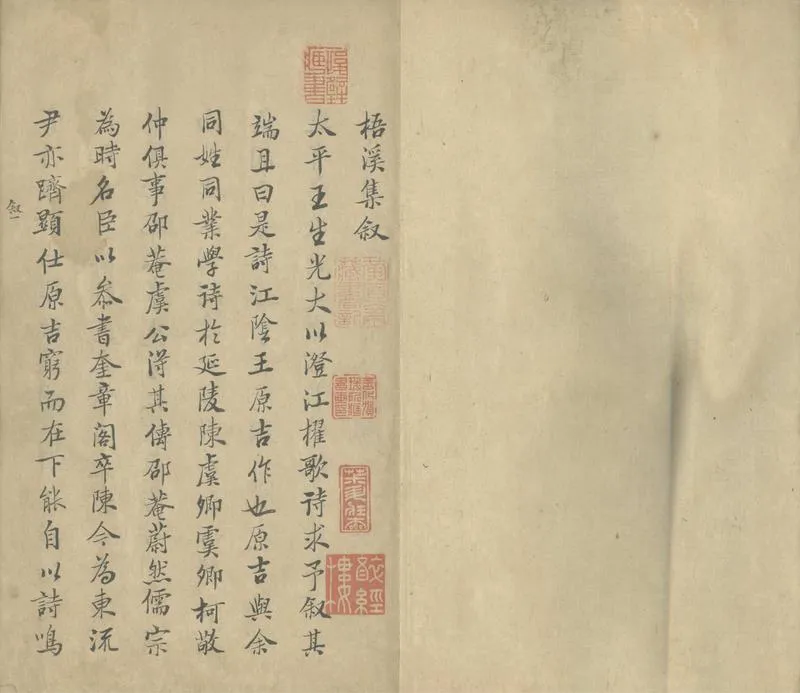 梧溪集叙
太平王生光大以澄江櫂歌詩求予叙其
端且曰是詩江陰王原吉作也原吉與余
同姓同業學詩於延陵陳虞卿虞卿柯敬
仲俱事邵菴虞公得其傳邵菴蔚然儒宗
為時名臣以叅書奎章閣卒陳今為東流
尹亦躋顯仕原吉窮而在下能自以詩鳴
叙一